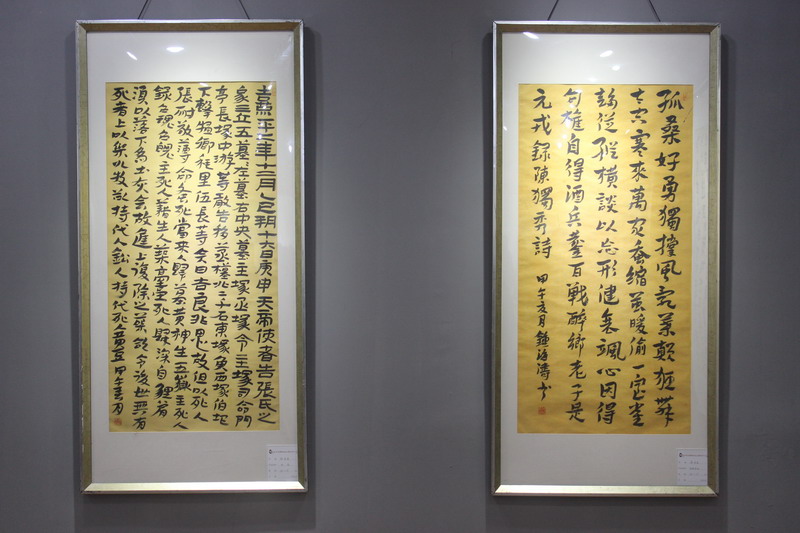 熹平二年十二月乙巳朔十六日庚申天帝使者告張氏之
家三丘五墓墓左墓右中央墓主塚丞塚令主塚司命門
亭長塚中游等敢告移丘丞二千石東塚侯西塚伯地
下擊犆卿耗里伍長等今日吉良非用他故但以死人
張叔敬薄命蚤死當來歸丘墓黃神生五嶽主死人
錄召魂召魄主死人籍生人築高臺死人歸深自貍眉
須以落下為土灰今故進上復除之藥欲令後世無有
死者上以九枚欲持代人鉛人持代死人黃豆 甲午春月
孤桑好勇獨撐風亂葉顛狂舞
太空寒來萬家蚕縮繭暖偷一室雀
趨叢縱橫談以忘形健衰颯心因得
句雄自得酒兵鏖百戰醉鄉老子是
元戎錄陳獨秀詩 甲午夏月鍾海濤書